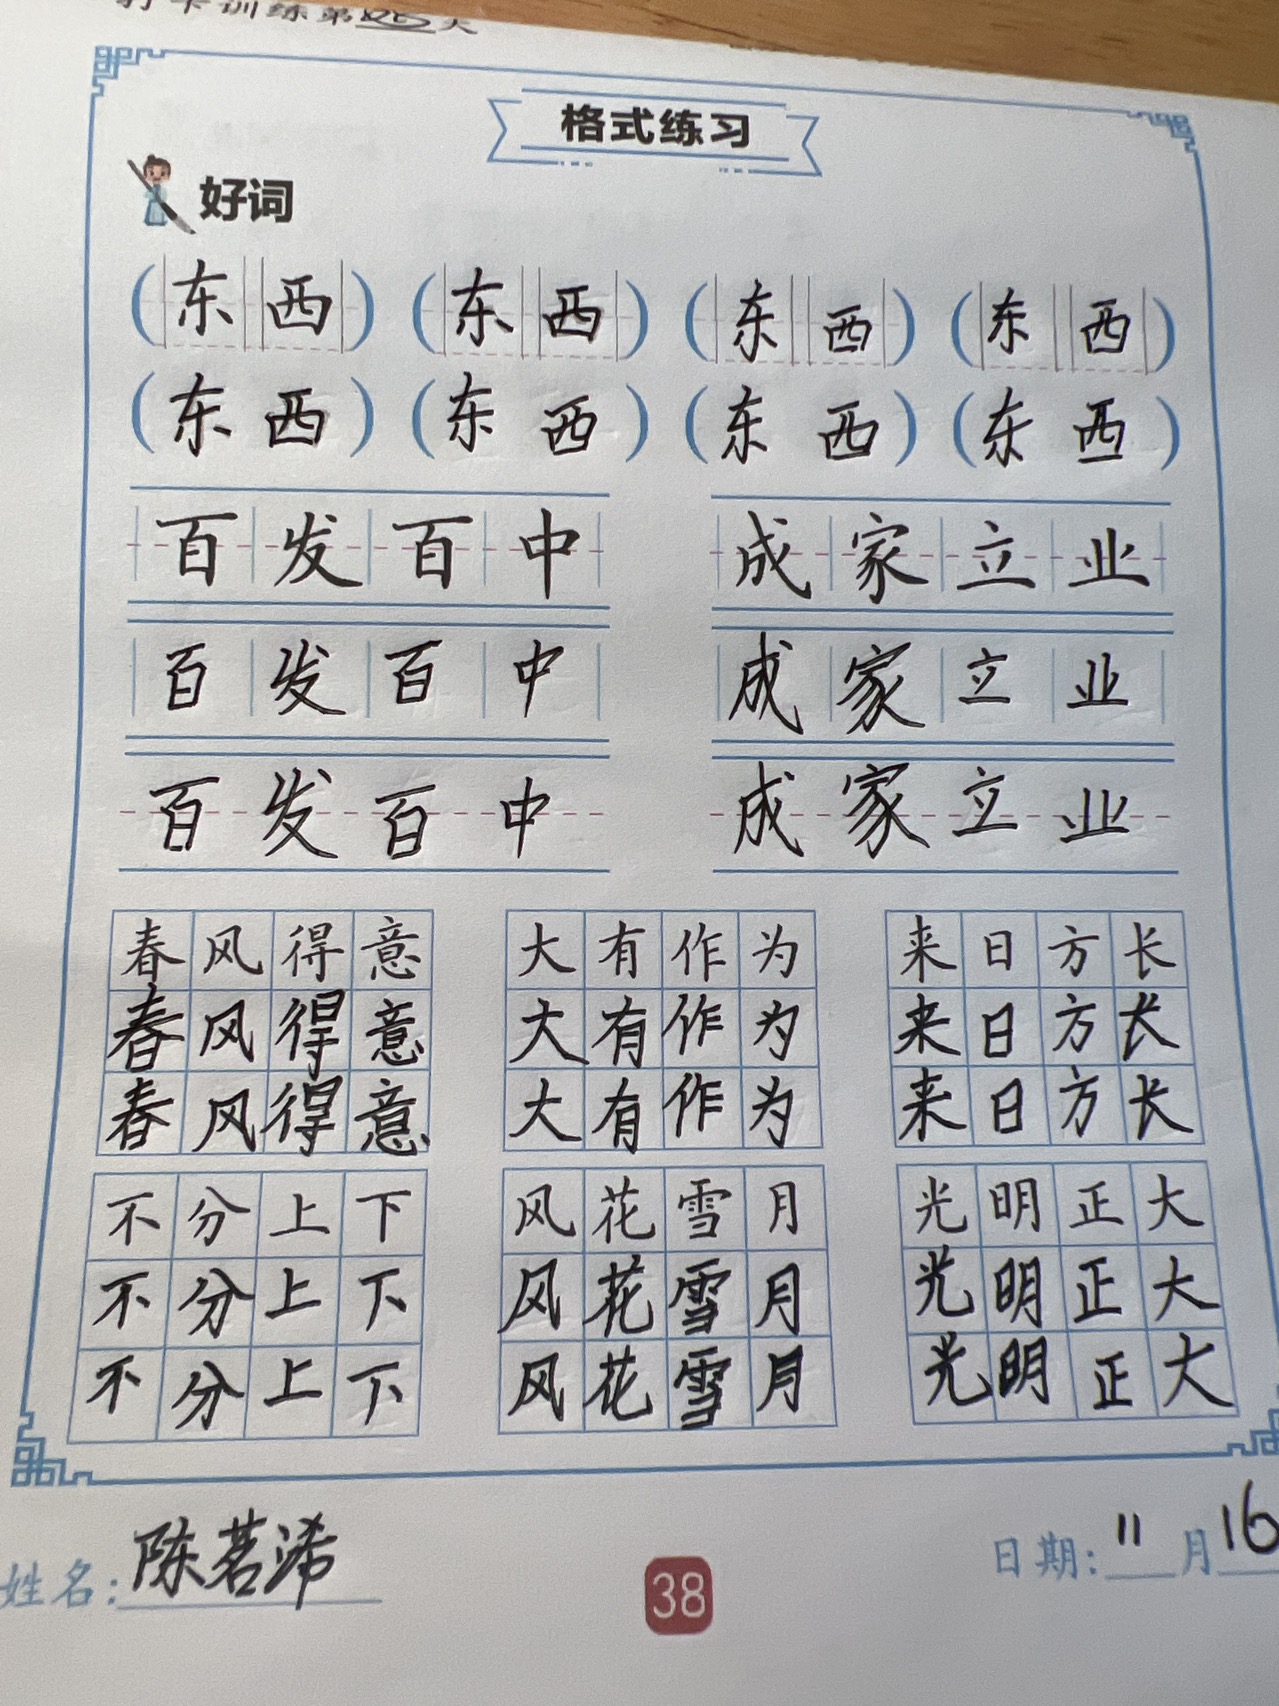 打卡训练第 天
格式练习
好词
(东西) (东西) (东西) (东西)
(东西) (东西) (东西) (东西)
百发百中 成家立业
百发百中 成家立业
百发百中 成家立业
春风得意 大有作为 来日方长
春风得意 大有作为 来日方长
春风得意 大有作为 来日方长
不分上下 风花雪月 光明正大
不分上下 风花雪月 光明正大
不分上下 风花雪月 光明正大
姓名:陈茗浠 日期:11月16
38